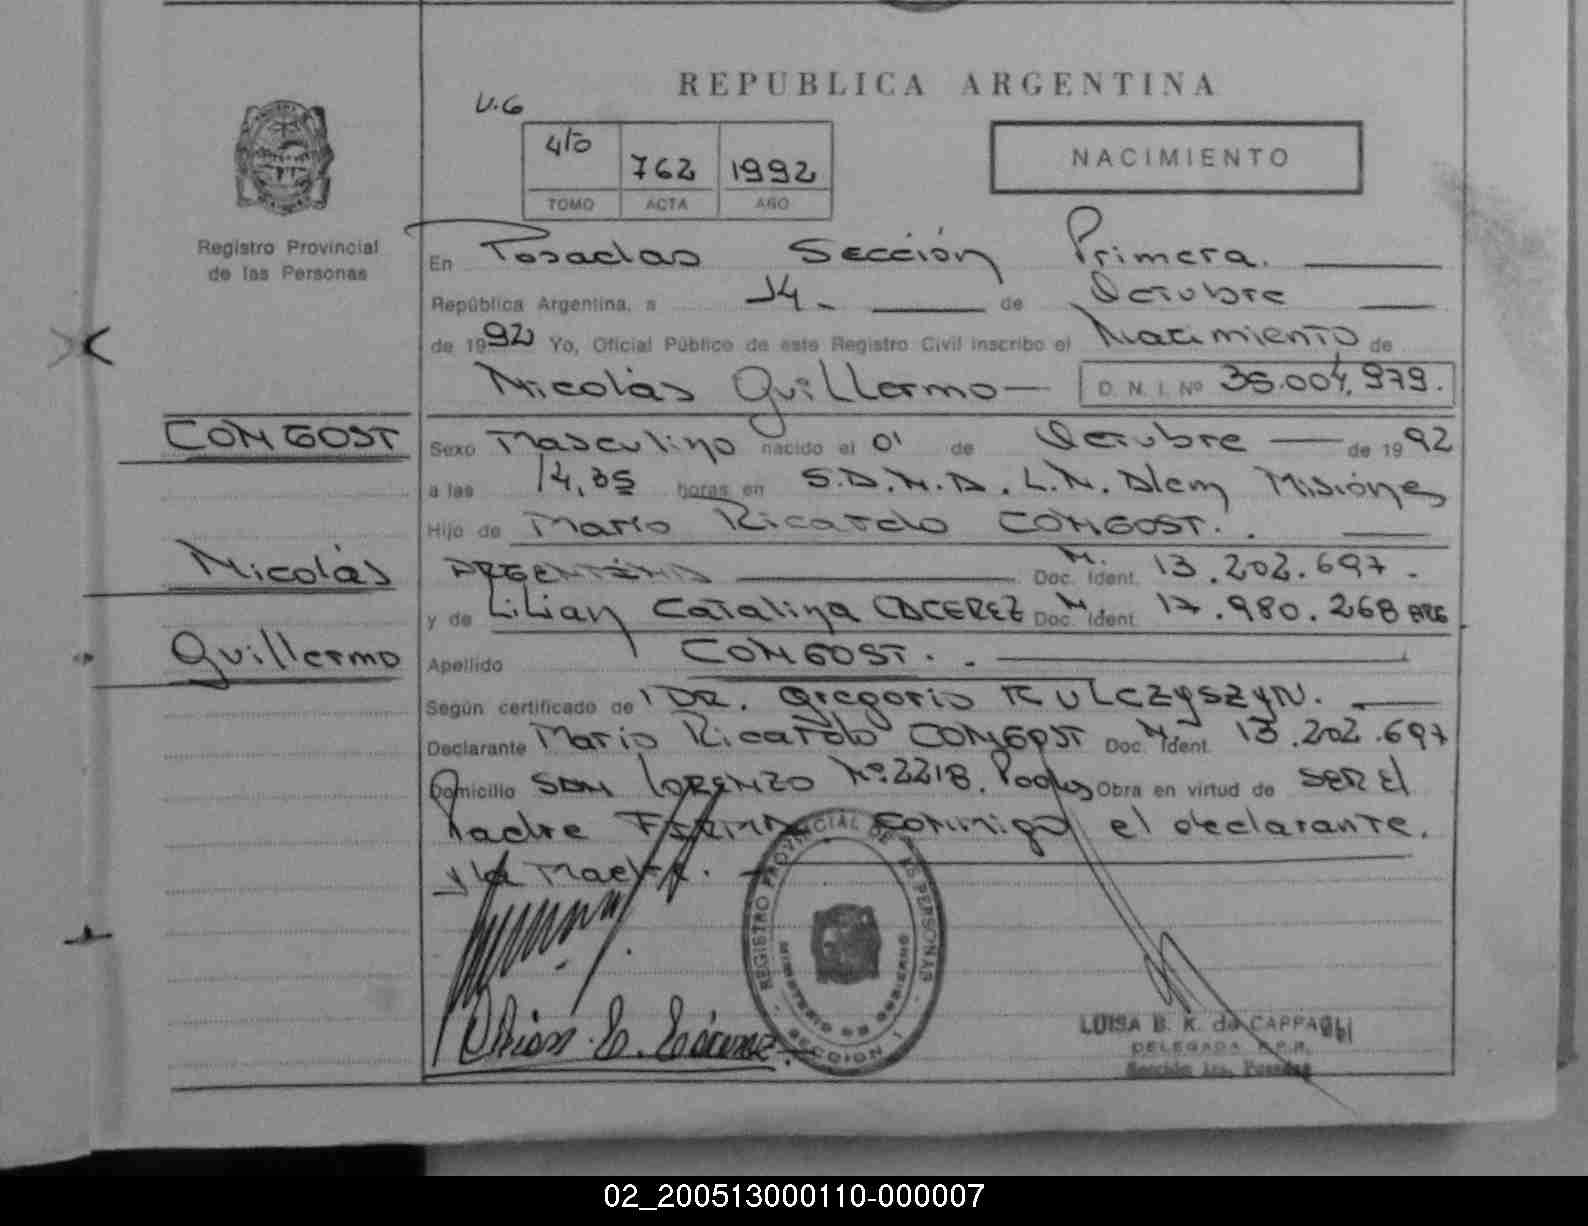 REPUBLICA ARGENTINA
V.6
4to 762 1992
TOMO ACTA AÑO
NACIMIENTO
Registro Provincial
de las Personas
En Posadas Sección Primera.
República Argentina, a 14 de Octubre
de 1992 Yo, Oficial Público de este Registro Civil inscribo el Nacimiento de
Nicolás Guillermo D. N. I. Nº 36.004.979.
CONGOST
Sexo Masculino nacido el 01 de Octubre de 1992
a las 14,35 horas en L.N. Alem Misiones
Hijo de Mario Ricardo CONGOST.
Nicolás
ARGENTINO Doc. Ident. N. 13.202.697.
y de Lilian Catalina CACEREZ Doc. Ident. N 17.980.268 ARG
Guillermo
Apellido CONGOST.
Según certificado de DR. Gregorio KULCZYSZYN.
Declarante Mario Ricardo CONGOST Doc. Ident. N 13.202.697
Domicilio SAN LORENZO Nº 2218. Posadas Obra en virtud de SER El
Padre FIRMA conmigo el declarante.
y la Madre.
REGISTRO PROVINCIAL DE LAS PERSONAS
MINISTERIO DE GOBIERNO
SECCION 1
LUISA B. K. de CAPPA
DELEGADA R.P.P.
Sección 1ra. Posadas
02_200513000110-000007